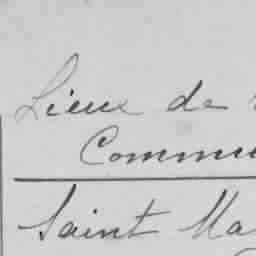 Lieux de
Commu
Saint Ma